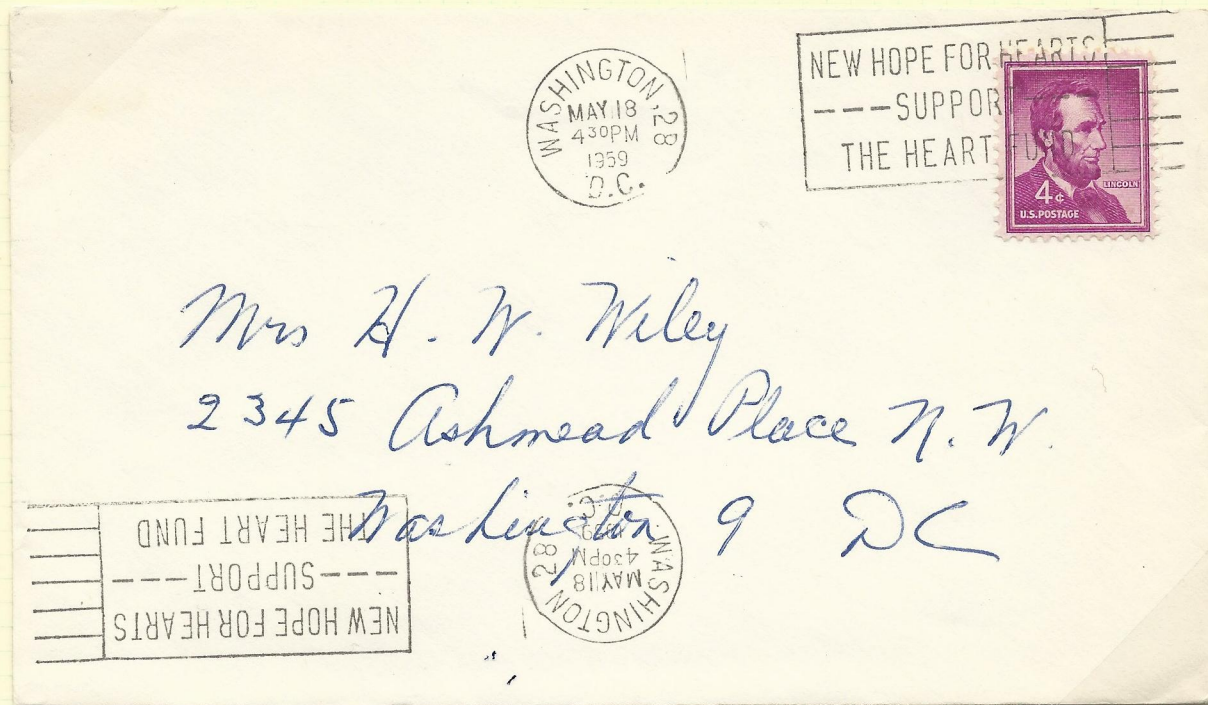 WASHINGTON, 28
MAY 18
4 30 PM
1959
D.C.
NEW HOPE FOR HEARTS
---SUPPORT
THE HEART FUND
LINCOLN
4¢
U.S. POSTAGE
Mrs H. W. Wiley
2345 Ashmead Place N.W.
Washington 9 DC
NEW HOPE FOR HEARTS
---SUPPORT---
THE HEART FUND
WASHINGTON 28
MAY 18
4 30 PM
1959
D.C.